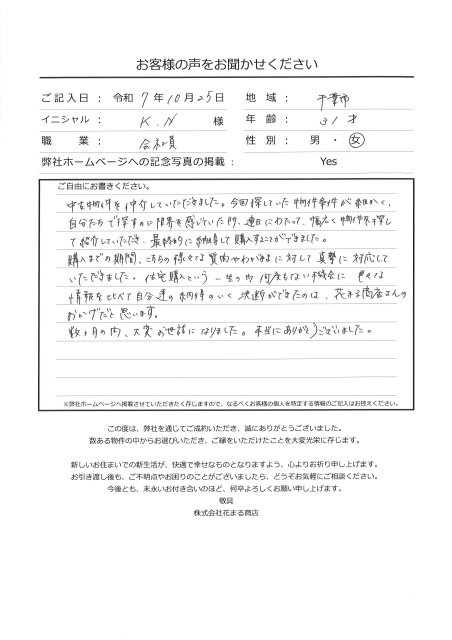 お客様の声をお聞かせください
ご記入日 : 令和 7年10月25日 地 域 : 千葉市
イニシャル : K.N 様 年 齢 : 31才
職 業 : 会社員 性 別 : 男 ・ 女
弊社ホームページへの記念写真の掲載 : Yes
ご自由にお書きください。
中古物件を仲介していただきました。今回探していた物件条件が細かく、
自分たちで探すのに限界を感じていた所、連日にわたって、幅広く物件を探し
て紹介していただき、最終的に納得して購入することができました。
購入までの期間、こちらの様々な質問やわがままに対して真摯に対応して
いただきました。住宅購入という一生の内何度もない機会に 色々な
情報を比べて自分達の納得のいく決断ができたのは、花まる商店さんの
おかげだと思います。
数ヶ月の内、大変お世話になりました。本当にありがとうございました。
※弊社ホームページへ掲載させていただきたく存じますので、なるべくお客様の個人を特定する情報のご記入はお控えください。
この度は、弊社を通じてご成約いただき、誠にありがとうございました。
数ある物件の中からお選びいただき、ご縁をいただけたことを大変光栄に存じます。
新しいお住まいでの新生活が、快適で幸せなものとなりますよう、心よりお祈り申し上げます。
お引き渡し後も、ご不明点やお困りのことがございましたら、どうぞお気軽にご相談ください。
今後とも、末永いお付き合いのほど、何卒よろしくお願い申し上げます。
敬具
株式会社花まる商店